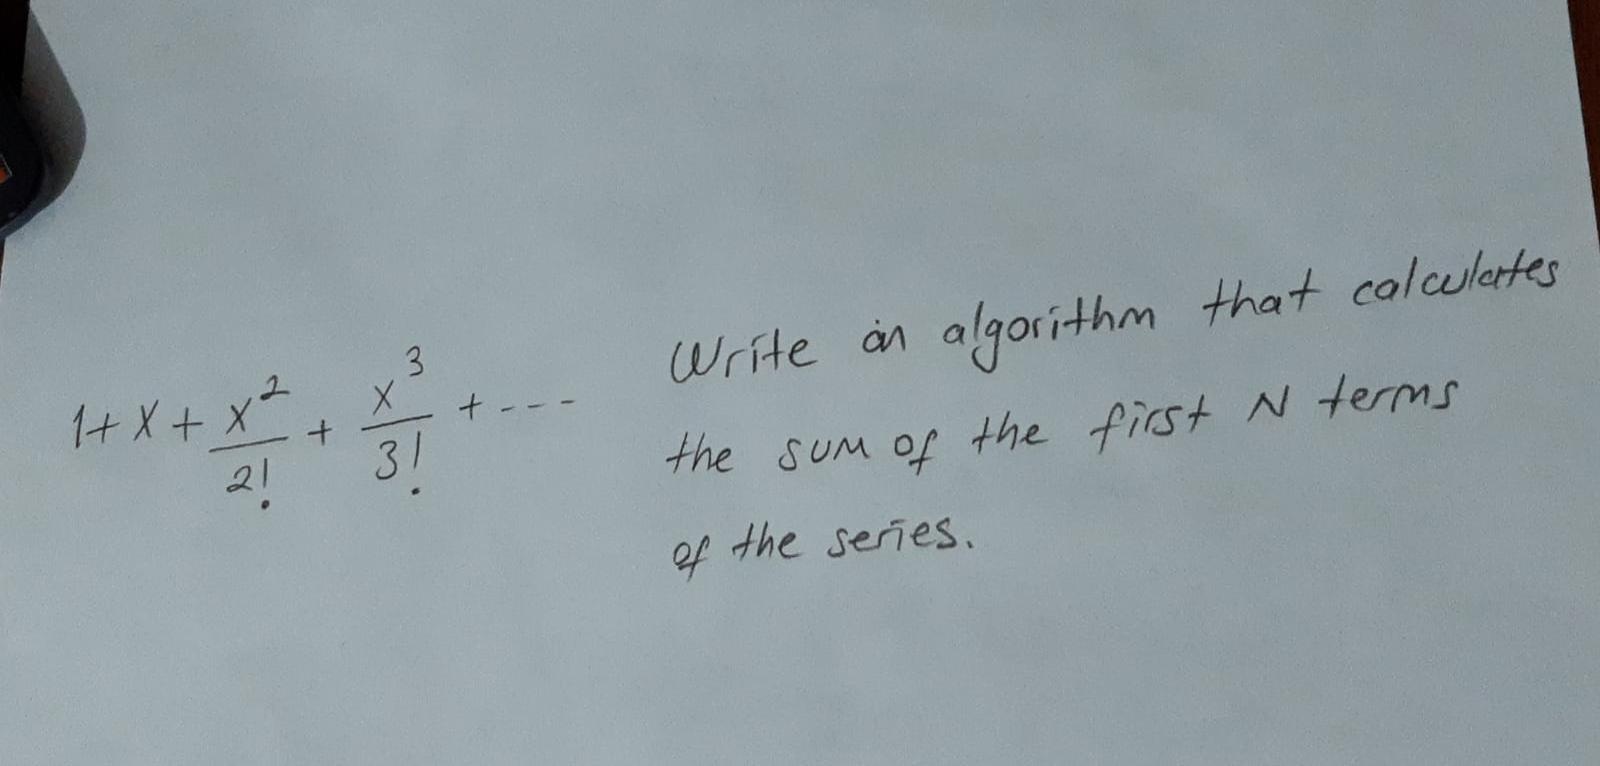 1+x+x²/2! + x³/3! + ----
Write an algorithm that calculates
the sum of the first N terms
of the series.